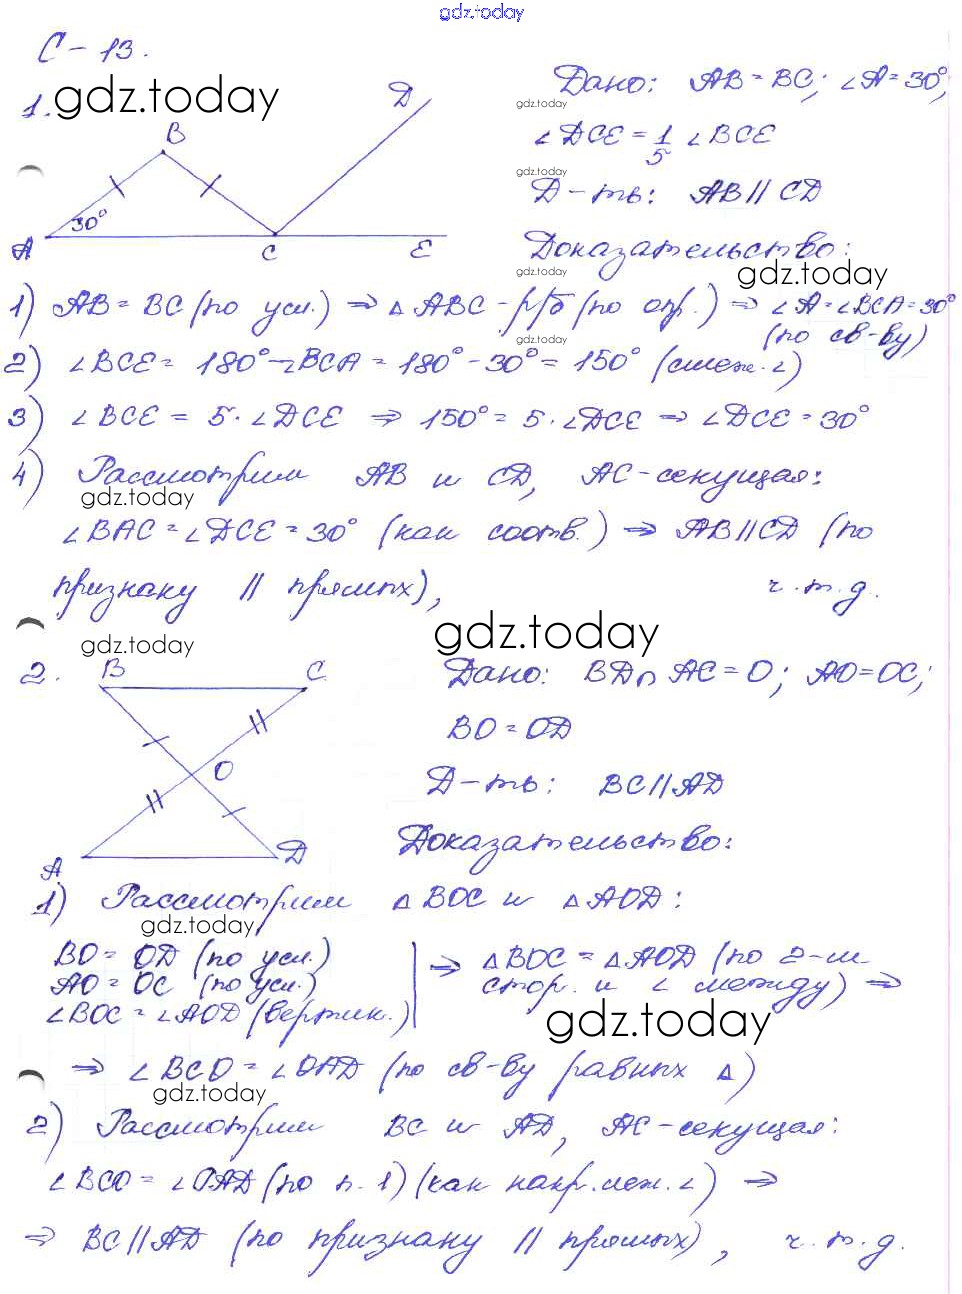 gdz.today
С - 13.
gdz.today
1.
B
D
30°
A
C
E
Дано: AB = BC; ∠A = 30°;
gdz.today
∠DCE = 1/5 ∠BCE
gdz.today
Д-ть: AB || CD
Доказательство:
gdz.today
gdz.today
1) AB = BC (по усл.) ⇒ △ABC - р/б (по опр.) ⇒ ∠A = ∠BCA = 30°
(по св-ву)
gdz.today
2) ∠BCE = 180° - ∠BCA = 180° - 30° = 150° (смеж. ∠)
3) ∠BCE = 5 · ∠DCE ⇒ 150° = 5 · ∠DCE ⇒ ∠DCE = 30°
4) Рассмотрим AB и CD, AC - секущая:
gdz.today
∠BAC = ∠DCE = 30° (как соотв.) ⇒ AB || CD (по
признаку || прямых), ч.т.д.
gdz.today
gdz.today
2.
B
C
O
A
D
Дано: BD ∩ AC = O; AO = OC;
BO = OD
Д-ть: BC || AD
Доказательство:
1) Рассмотрим △BOC и △AOD:
gdz.today
BO = OD (по усл.)
AO = OC (по усл.)
∠BOC = ∠AOD (вертик.)
⇒ △BOC = △AOD (по 2-м
стор. и ∠ между) ⇒
gdz.today
⇒ ∠BCO = ∠OAD (по св-ву равных △)
gdz.today
2) Рассмотрим BC и AD, AC - секущая:
∠BCO = ∠OAD (по п. 1) (как накр. леж. ∠) ⇒
⇒ BC || AD (по признаку || прямых), ч.т.д.